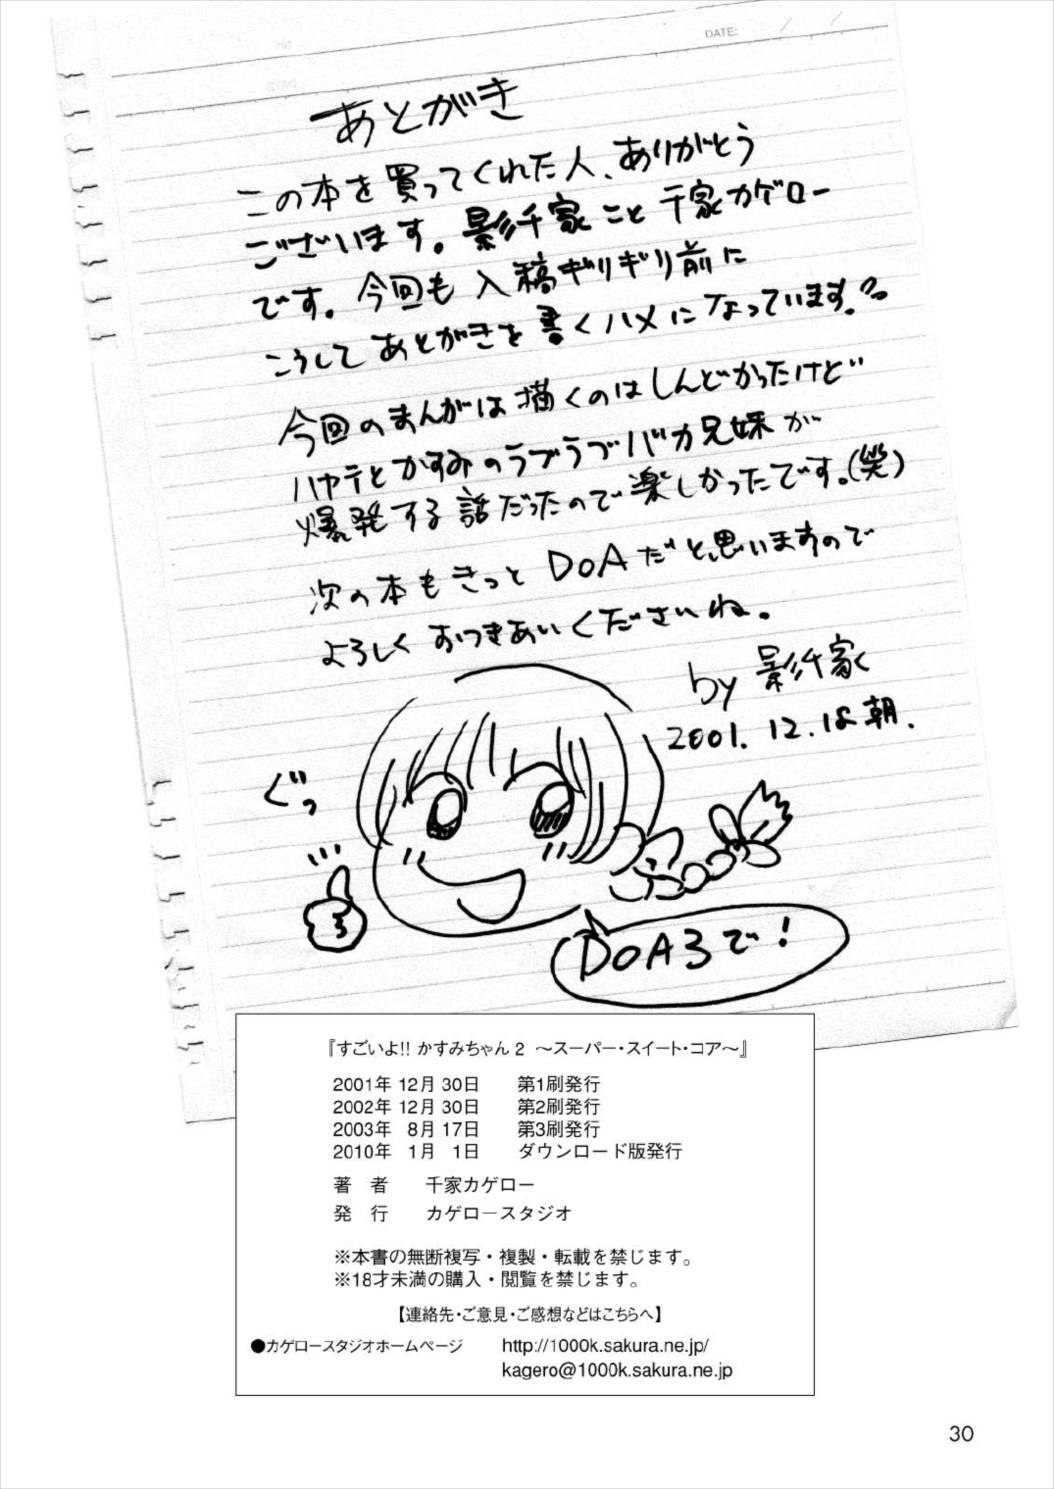 DATE:
あとがき
この本を買ってくれた人、ありがとう
ございます。影千家こと千家カゲロー
です。今回も入稿ギリギリ前に
こうしてあとがきを書くハメになっています。
今回のまんがは描くのはしんどかったけど
ハヤテとかすみのラブラブバカ兄妹が
爆発する話だったので楽しかったです。(笑)
次の本もきっとDOAだと思いますので
よろしくおつきあいくださいね。
by 影千家
2001.12.18朝.
ぐっ
DOA3で!
『すごいよ!! かすみちゃん2 ～スーパー・スイート・コア～』
2001年12月30日 第1刷発行
2002年12月30日 第2刷発行
2003年 8月17日 第3刷発行
2010年 1月 1日 ダウンロード版発行
著 者 千家カゲロー
発 行 カゲロースタジオ
※本書の無断複写・複製・転載を禁じます。
※18才未満の購入・閲覧を禁じます。
【連絡先・ご意見・ご感想などはこちらへ】
●カゲロースタジオホームページ http://1000k.sakura.ne.jp/
kagero@1000k.sakura.ne.jp
30